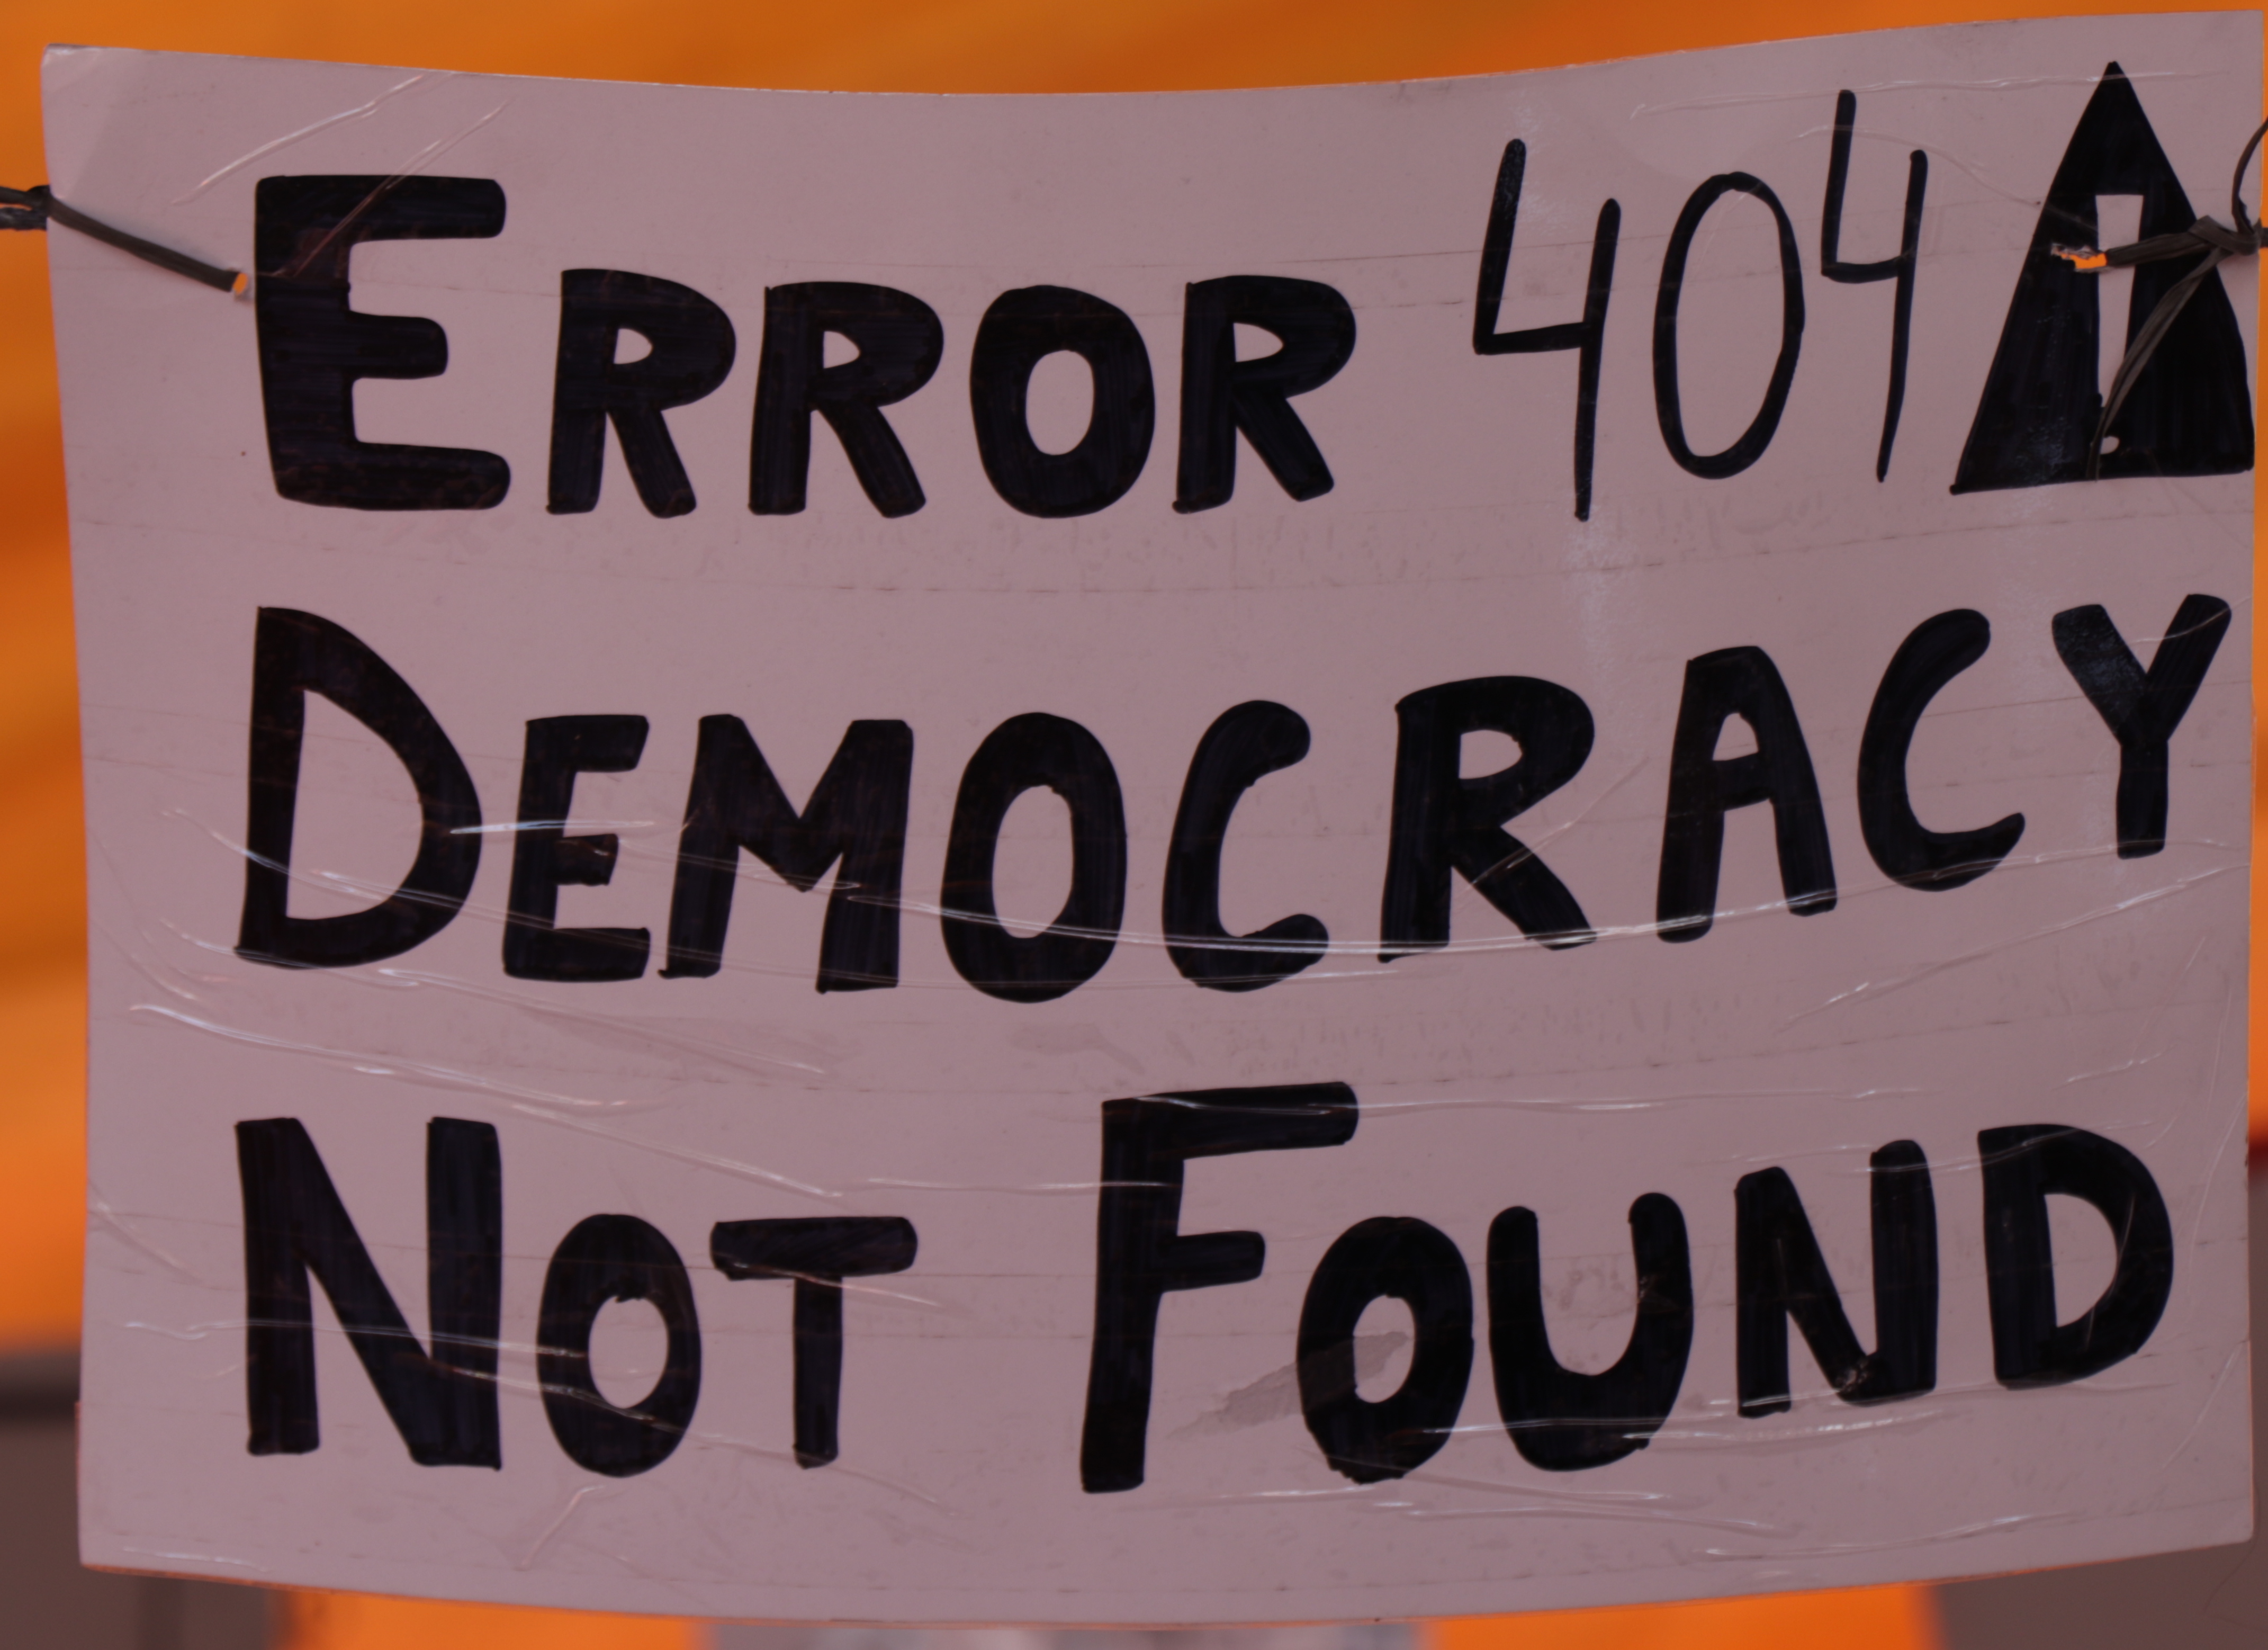 ERROR 404
DEMOCRACY
NOT FOUND